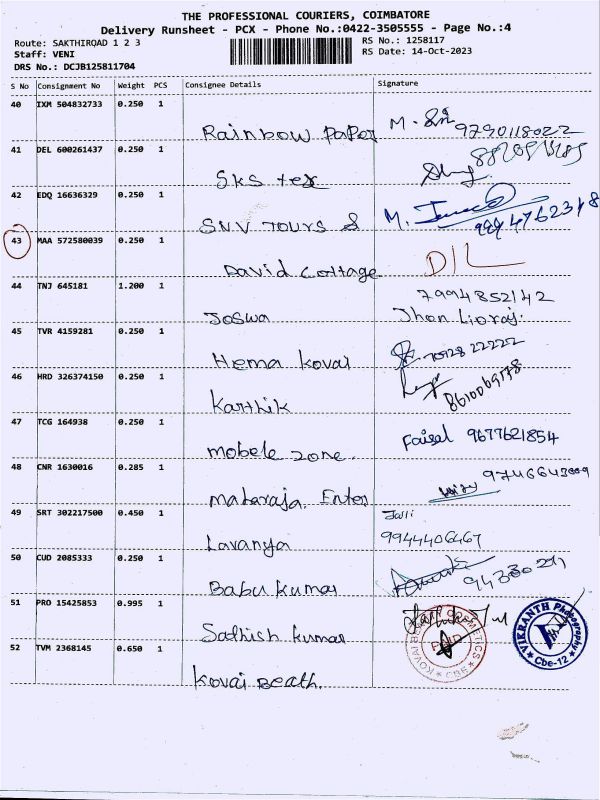 THE PROFESSIONAL COURIERS, COIMBATORE
Delivery Runsheet - PCX - Phone No.:0422-3505555 - Page No.:4
Route: SAKTHIROAD 1 2 3
RS No.: 1258117
Staff: VENI
RS Date: 14-Oct-2023
DRS No.: DCJB125811704
S No Consignment No Weight PCS Consignee Details Signature
40 IXM 504832733 0.250 1
Rainbow Paper M. 9790118022
41 DEL 600261437 0.250 1
SKS tex
42 EDQ 16636329 0.250 1
SNV TOURS & M.
43 MAA 572580039 0.250 1
David Cottage D/L
44 TNJ 645181 1.200 1
7994852142
Joswa Jhon
45 TVR 4159281 0.250 1
Hema Kovai
46 HRD 326374150 0.250 1
Karthik 8610069578
47 TCG 164938 0.250 1
mobele zone. Faisel 9677621854
48 CNR 1630016 0.285 1
Maharaja. Enter
49 SRT 302217500 0.450 1
Lavanya 9944406467
50 CUD 2085333 0.250 1
Babu kumar
51 PRO 15425853 0.995 1
Sathish kumar
52 TVM 2368145 0.650 1
Kovai Beath.
PAID
CBE
VIKRANTH Photography
Cbe-12